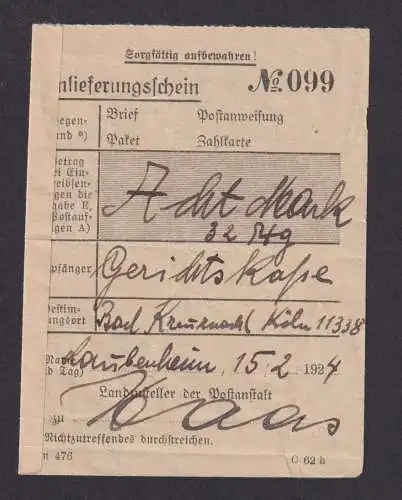 Sorgfältig aufbewahren!
nlieferungsschein № 099
egen-
and *)
Brief Postanweisung
Paket Zahlkarte
Betrag
ei Ein-
reibsen-
gen die
gabe E,
Postauf-
gen A)
Acht Mark
32 Pfg
pfänger Gerichtskasse
estim-
ungsort Bad Kreuznach (Köln 11338
Name
d Tag) Laubenheim, 15.2. 1924
Landzusteller der Postanstalt
zu Haas
Nichtzutreffendes durchstreichen.
n 476 C 62 h